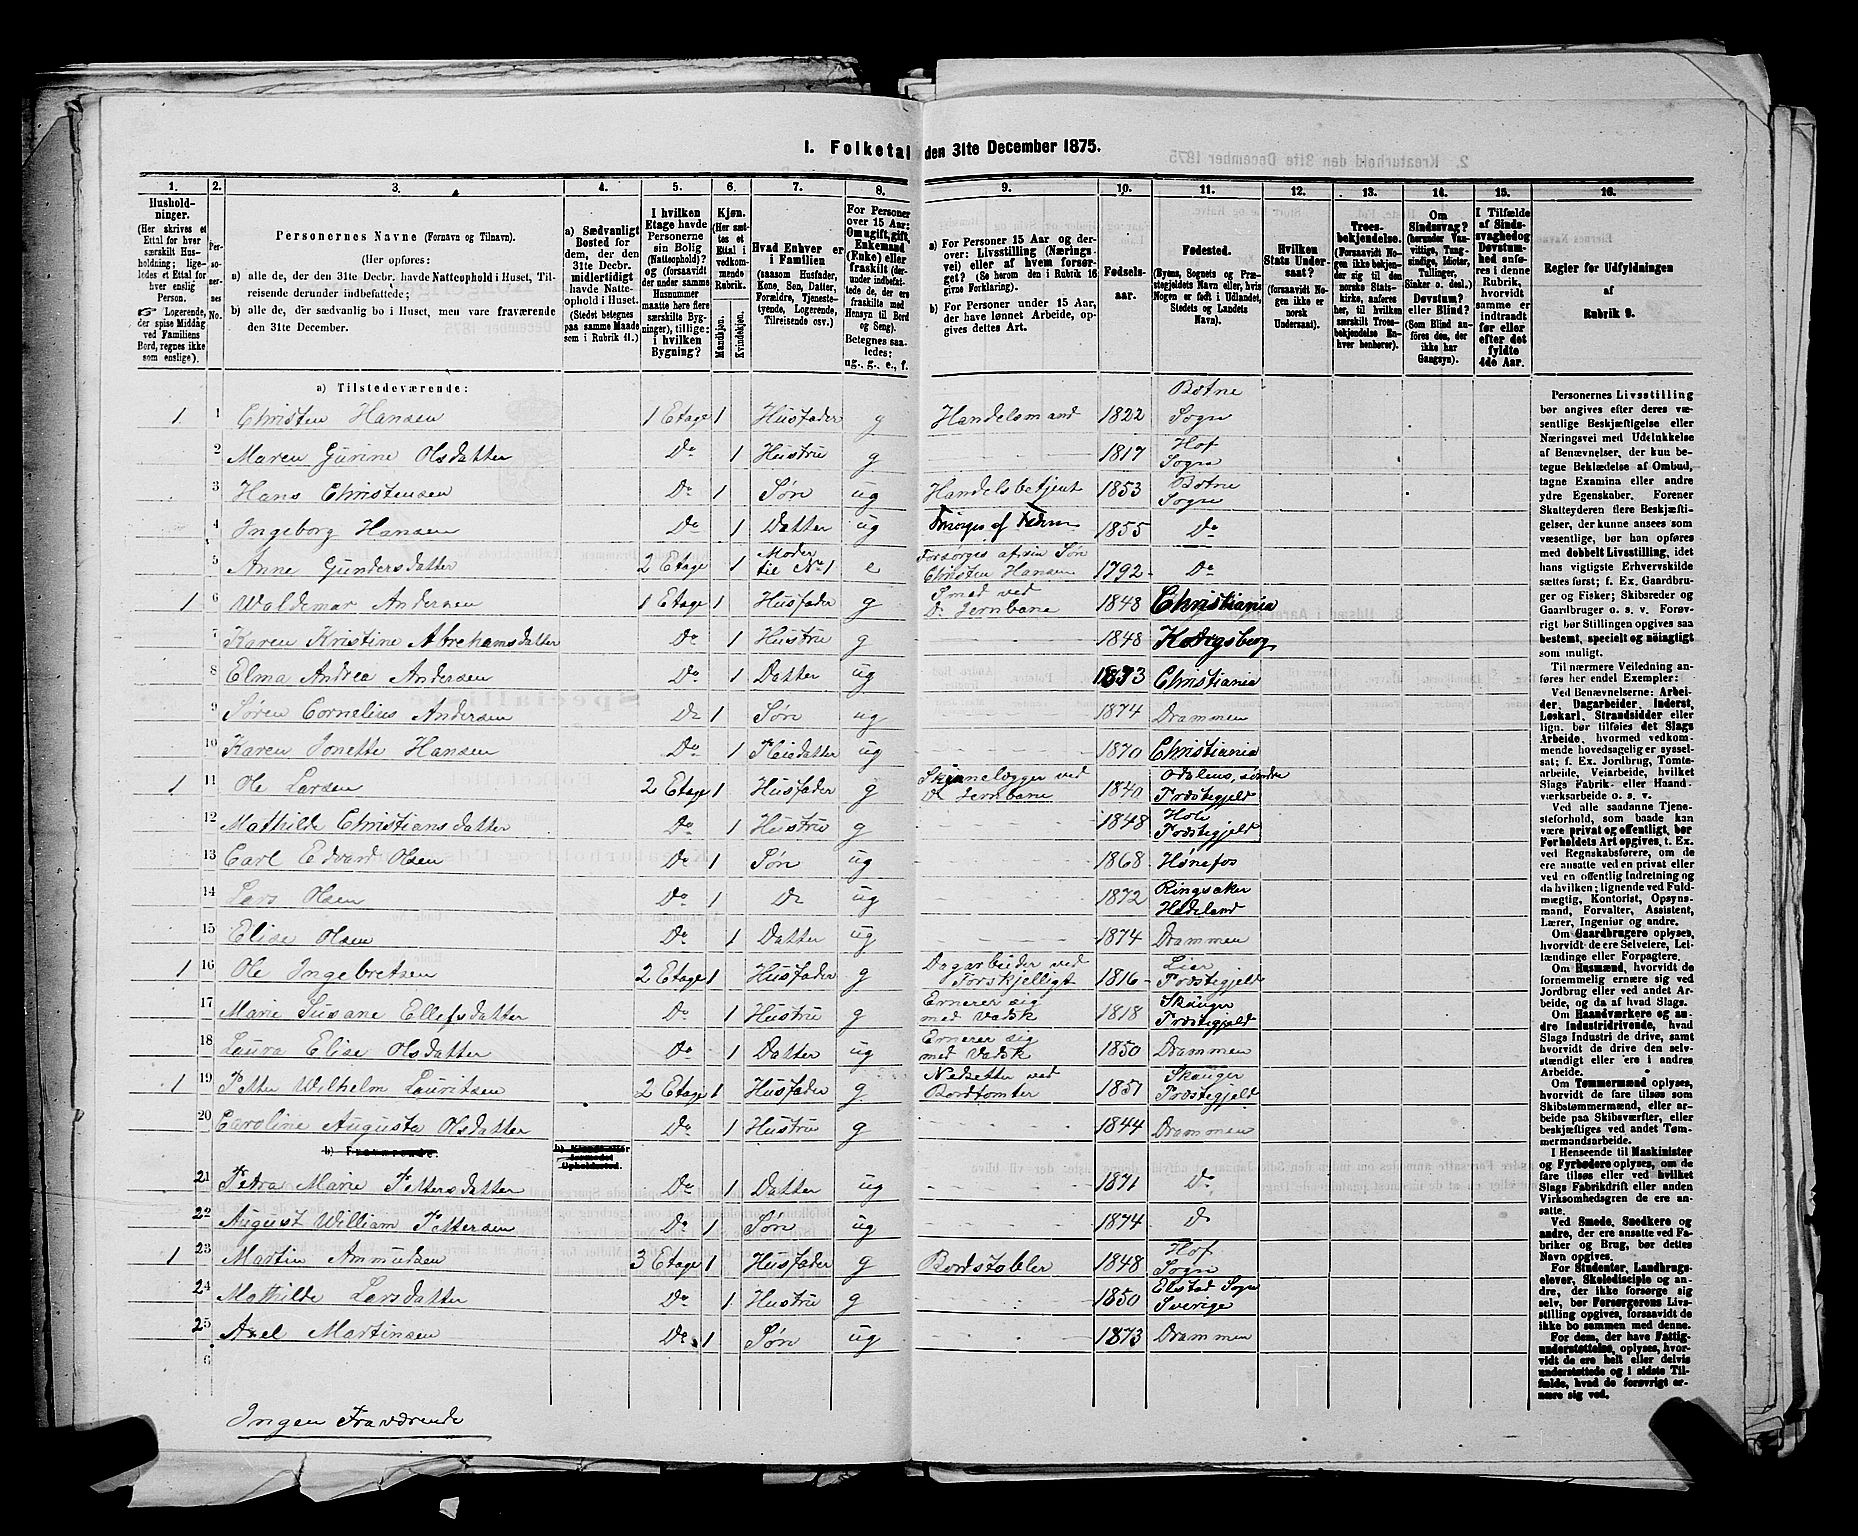 1. Folketal den 31te December 1875.
1. 2. 3. 4. 5. 6. 7. 8. 9. 10. 11. 12. 13. 14. 15. 16.
Hushold-
ninger.
(Her skrives et
Ettal for hver
særskilt Hus-
holdning; lige-
ledes et Ettal for
hver enslig
Person.
☞ Logerende,
der spise Middag
ved Familiens
Bord, regnes ikke
som enslige).
Per-
so-
ner-
nes
No.
Personernes Navne (Fornavn og Tilnavn).
(Her opføres:
a) alle de, der den 31te Decbr. havde Natteophold i Huset, Til-
reisende derunder indbefattede;
b) alle de, der sædvanlig bo i Huset, men vare fraværende
den 31te December.
a) Sædvanligt
Bosted for
dem, der den
31te Decbr.
midlertidigt
havde Natte-
ophold i Huset.
(Stedet betegnes
paa samme Maade
som i Rubrik 11.)
I hvilken
Etage havde
Personerne
sin Bolig
(Natteophold)?
og (forsaavidt
der under samme
Husnummer
maatte høre flere
særskilte Byg-
ninger), tillige:
i hvilken
Bygning?
Kjøn.
(Her sæt-
tes et
Ettal i
vedkom-
mende
Rubrik.
Mandkjøn.
Kvindekjøn.
Hvad Enhver er
i Familien
(saasom Husfader,
Kone, Søn, Datter,
Forældre, Tjeneste-
tyende, Logerende,
Tilreisende osv.)
For Personer
over 15 Aar:
Om ugift, gift,
Enkemand
(Enke) eller
fraskilt (der-
under indbefat-
tede de, der ere
fraskilte med
Hensyn til Bord
og Seng).
Betegnes saa-
ledes:
ug., g., e., f.
a) For Personer 15 Aar og der-
over: Livsstilling (Nærings-
vei) eller af hvem forsør-
get? (Se herom den i Rubrik 16
givne Forklaring).
b) For Personer under 15 Aar,
der have lønnet Arbeide, op-
gives dettes Art.
Fødsels-
aar.
Fødested.
(Byens, Sognets og Præ-
stegjeldets Navn eller, hvis
Nogen er født i Udlandet,
Stedets og Landets
Navn).
Hvilken
Stats Under-
saat?
(forsaavidt No-
gen ikke er
norsk
Undersaat).
Troes-
bekjendelse.
(Forsaavidt No-
gen ikke bekjen-
der sig til den
norske Stats-
kirke, anføres
her, til hvilken
særskilt Troes-
bekjendelse En-
hver henhører).
Om
Sindssvag?
(herunder Van-
vittige, Tung-
sindige, Idioter,
Tullinger,
Sinker o. desl.)
Døvstum?
eller Blind?
(Som Blind an-
føres den, der
ikke har
Gangsyn).
I Tilfælde
af Sinds-
svaghed og
Døvstum-
hed anfø-
res i denne
Rubrik,
hvorvidt
samme er
indtraadt
før eller
efter det
fyldte
4de Aar.
Regler for Udfyldningen
af
Rubrik 9.
a) Tilstedeværende:
1 1 Christen Hansen 1 Etage 1 Husfader g Handelsmand 1822 Botne Sogn
2 Maren Gurine Olsdatter Do 1 Hustru g 1817 Hof Sogn
3 Hans Christensen Do 1 Søn ug Handelsbetjent 1853 Botne Sogn
4 Ingeborg Hansen Do 1 Datter ug Forsørges af Faderen 1855 Do
5 Anne Gundersdatter 2 Etage 1 Moder til No 1 e Forsørges af sin Søn Christen Hansen 1792 Do
1 6 Waldemar Andersen 1 Etage 1 Husfader g Smed ved D. Jernbane 1848 Christiania
7 Karen Kristine Abrahamsdatter Do 1 Hustru g 1848 Kongsberg
8 Elma Andrea Andersen Do 1 Datter ug 1873 Christiania
9 Søren Cornelius Andersen Do 1 Søn ug 1874 Drammen
10 Karen Jonette Hansen Do 1 Pleiedatter ug 1870 Christiania
1 11 Ole Larsen 2 Etage 1 Husfader g Skinnelægger ved D. Jernbane 1840 Odalens, søndre Præstegjeld
12 Mathilde Christiansdatter Do 1 Hustru g 1848 Hole Præstegjeld
13 Carl Edvard Olsen Do 1 Søn ug 1868 Hønefos
14 Lars Olsen Do 1 Do ug 1872 Ringsaker Hedeland
15 Elise Olsen Do 1 Datter ug 1874 Drammen
1 16 Ole Ingebretsen 2 Etage 1 Husfader g Dagarbeider ved Forskjelligt 1816 Lier Præstegjeld
17 Marie Susane Ellefsdatter Do 1 Hustru g Ernerer sig med Vadsk 1818 Skouger Præstegjeld
18 Laura Elise Olsdatter Do 1 Datter ug Ernerer sig med Vadsk 1850 Drammen
1 19 Petter Wilhelm Lauritsen 2 Etage 1 Husfader g Nedsetter ved Bordtomter 1851 Skouger Præstegjeld
20 Caroline Augusta Olsdatter Do 1 Hustru g 1844 Drammen
b) Fraværende
21 Petra Marie Pettersdatter Do 1 Datter ug 1871 Do
22 August William Pettersen Do 1 Søn ug 1874 Do
1 23 Martin Ammundsen 3 Etage 1 Husfader g Bordstabler 1848 Hof Sogn
24 Mathilde Larsdatter Do 1 Hustru g 1850 Sogn Sverige
25 Axel Martinsen Do 1 Søn ug 1873 Drammen
6
Ingen Fraværende
Personernes Livsstilling
bør angives efter deres væ-
sentlige Beskjæftigelse eller
Næringsvei med Udelukkelse
af Benævnelser, der kun be-
tegne Beklædelse af Ombud,
tagne Examina eller andre
ydre Egenskaber. Forener
Skatteyderen flere Beskjæfti-
gelser, der kunne ansees som
væsentlige, bør han opføres
med dobbelt Livsstilling, idet
hans vigtigste Erhvervskilde
sættes først; f. Ex. Gaardbru-
ger og Fisker; Skibsreder og
Gaardbruger o. s. v. Forøv-
rigt bør Stillingen opgives saa
bestemt, specielt og nøiagtigt
som muligt.
Til nærmere Veiledning an-
føres her endel Exempler:
Ved Benævnelserne: Arbei-
der, Dagarbeider, Inderst,
Løskarl, Strandsidder eller
lign. bør tilføies det Slags
Arbeide, hvormed vedkom-
mende hovedsagelig er syssel-
sat; f. Ex. Jordbrug, Tomte-
arbeide, Veiarbeide, hvilket
Slags Fabrik- eller Haand-
værksarbeide o. s. v.
Ved alle saadanne Tjene-
steforhold, som baade kan
være privat og offentligt, bør
Forholdets Art opgives, t. Ex.
ved Regnskabsførere, om de
ere ansatte ved en privat eller
ved en offentlig Indretning og
da hvilken; lignende ved Fuld-
mægtig, Kontorist, Opsyns-
mand, Forvalter, Assistent,
Lærer, Ingeniør og andre.
Om Gaardbrugere oplyses,
hvorvidt de ere Selveiere, Lei-
lændinge eller Forpagtere.
Om Husmænd, hvorvidt de
fornemmelig ernære sig ved
Jordbrug eller ved andet Ar-
beide, og da af hvad Slags.
Om Haandværkere og an-
dre Industridrivende, hvad
Slags Industri de drive, samt
hvorvidt de drive den selv-
stændigt eller ere i andres
Arbeide.
Om Tømmermænd oplyses,
hvorvidt de fare tilsøs som
Skibstømmermænd, eller ar-
beide paa Skibsværfter, eller
beskjæftiges ved andet Tøm-
mermandsarbeide.
I Henseende til Maskinister
og Fyrbødere oplyses, om de
fare tilsøs eller ved hvilket
Slags Fabrikdrift eller anden
Virksomhedsgren de ere an-
satte.
Ved Smede, Snedkere og
andre, der ere ansatte ved Fa-
briker og Brug, bør dettes
Navn opgives.
For Studenter, Landbrugs-
elever, Skoledisciple og an-
dre, der ikke forsørge sig
selv, bør Forsørgerens Livs-
stilling opgives, forsaavidt de
ikke bo sammen med denne.
For dem, der have Fattig-
understøttelse, oplyses, hvor-
vidt de ere helt eller delvis
understøttede og i sidste Til-
fælde, hvad de forøvrigt er-
nære sig ved.